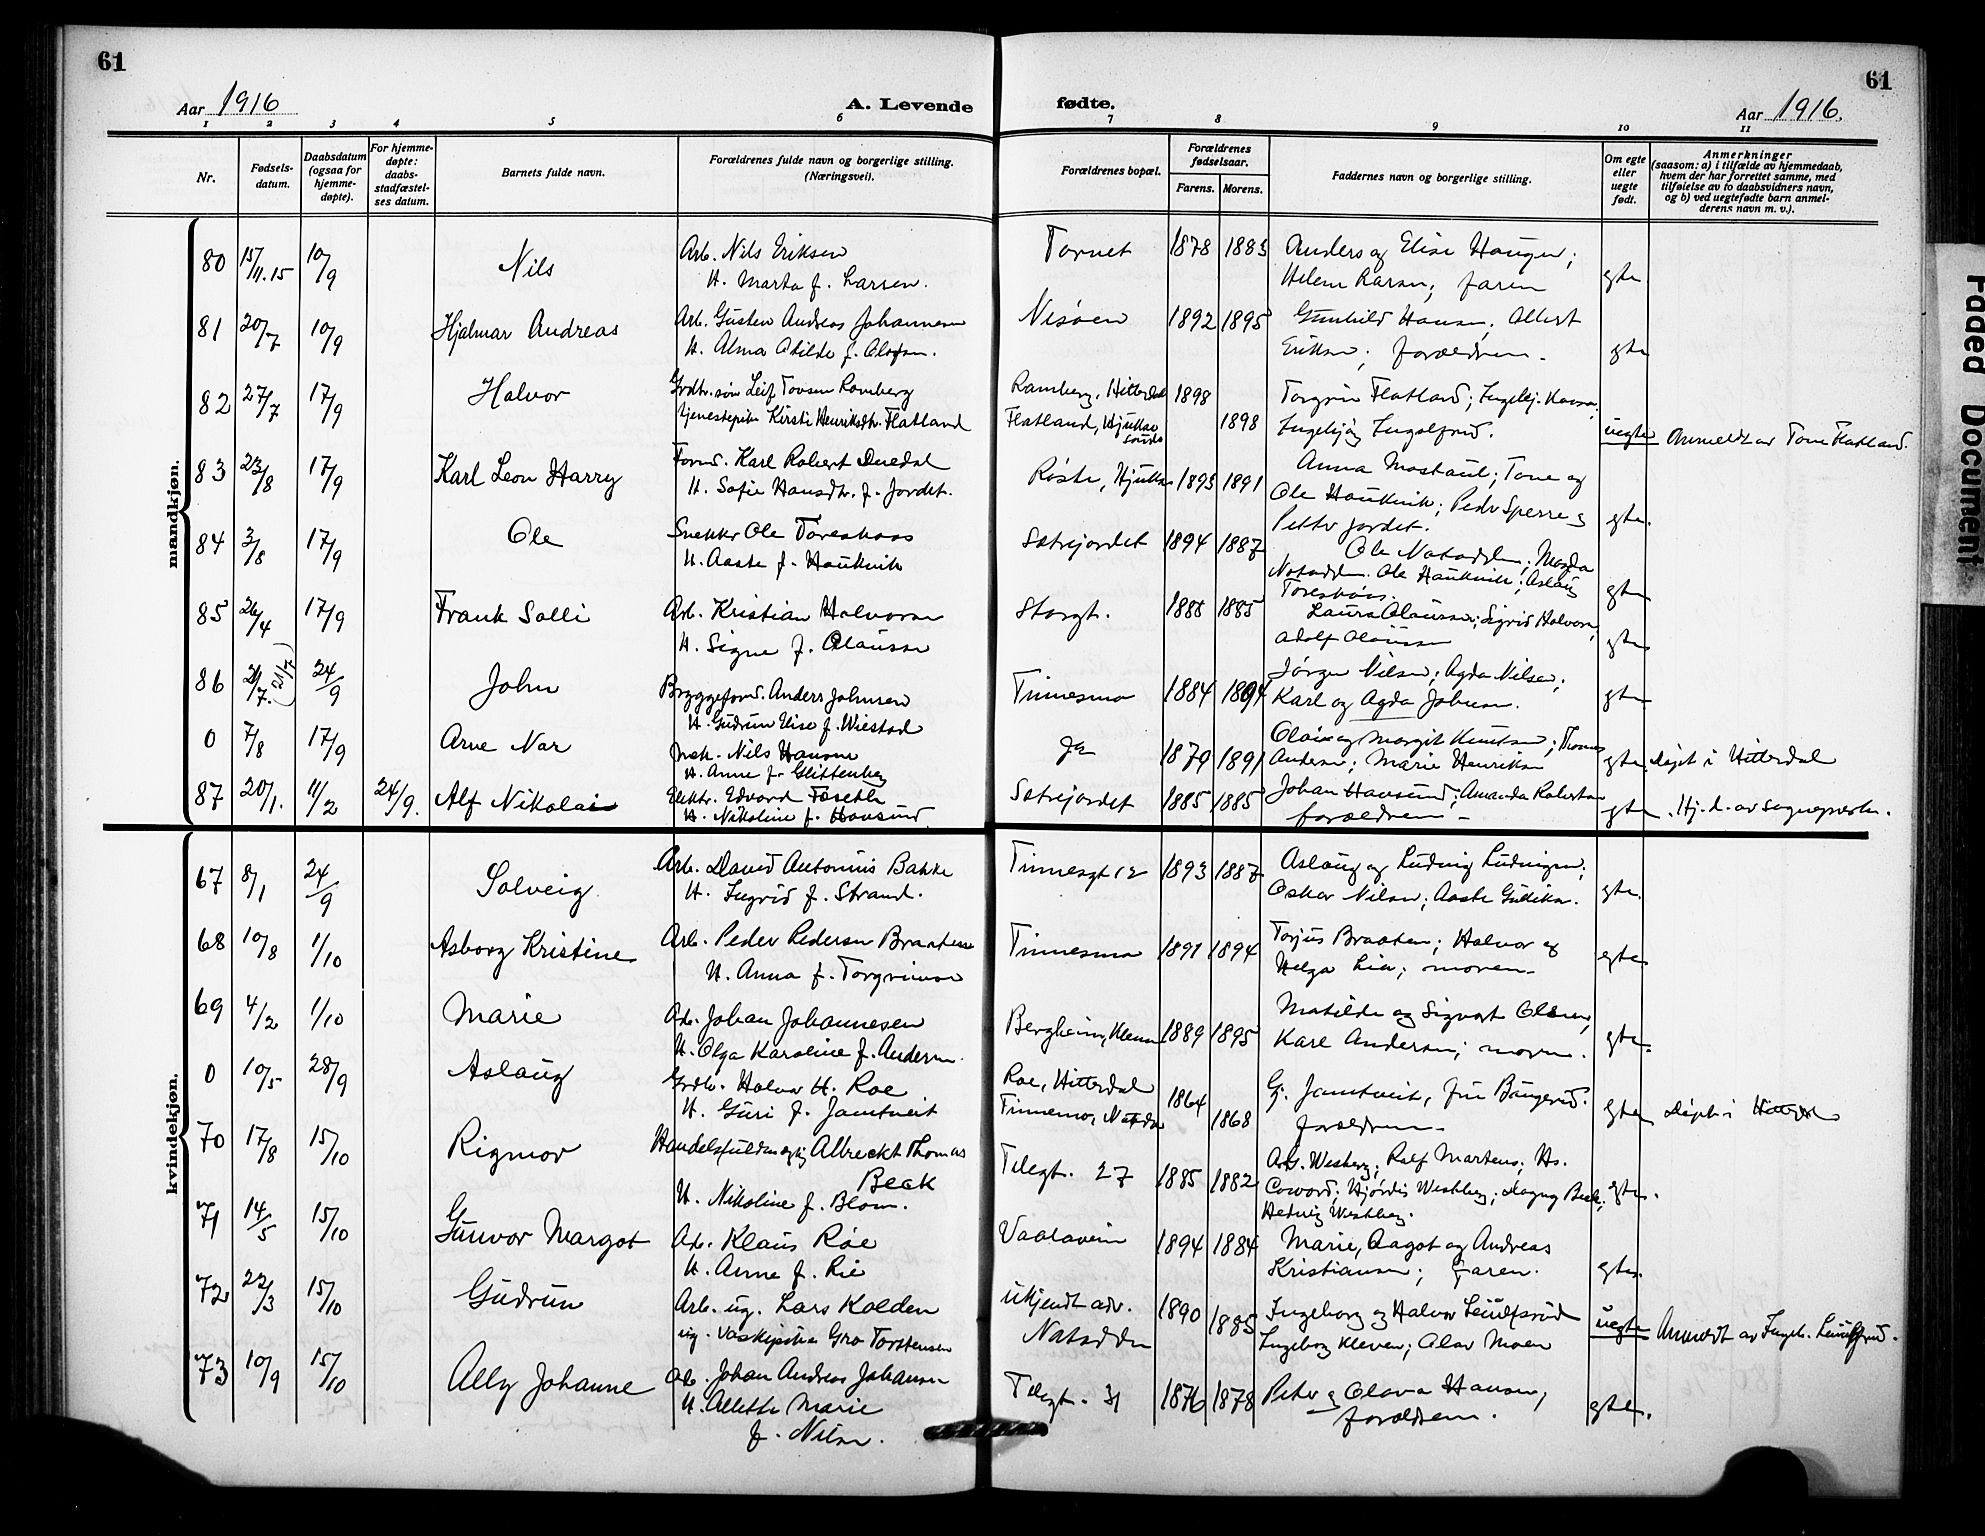 61
61
Aar 1916
A. Levende
fødte.
Aar 1916.
1 2 3 4 5 6 7 8 9 10 11
Nr.
Fødsels-
datum.
Daabsdatum
(ogsaa for
hjemme-
døpte).
For hjemme-
døpte:
daabs-
stadfæstel-
ses datum.
Barnets fulde navn.
Forældrenes fulde navn og borgerlige stilling.
(Næringsvei).
Forældrenes bopæl.
Forældrenes
fødselsaar.
Farens. Morens.
Faddernes navn og borgerlige stilling.
Om egte
eller
uegte
født.
Anmerkninger
(saasom: a) i tilfælde av hjemmedaab,
hvem der har forrettet samme, med
tilføielse av to daabsvidners navn,
og b) ved uegtefødte barn anmel-
derens navn m. v.).
mandkjøn.
80 15/11.15 10/9 Nils Arb. Nils Eriksen Tornet 1878 1883 Anders og Elise Haugen;
H. Marta f. Larsen. Helene Larsen; faren egte
81 20/7 10/9 Hjalmar Andreas Arb. Gusten Andreas Johannesen Nisøen 1892 1895 Gunhild Hansen; Albert
H. Alma Otilde f. Olofsen. Eriksen; forældrene. egte
82 27/7 17/9 Halvor Grdbr. søn Leif Tovsen Ramberg Ramberg, Hitterdal 1898 Torgrim Flatland;
tjenestepike Kirsti Henriksdtr. Flatland Flatland, Hjuksebø 1898 Ingebjørg uegte Anmeldt av Tone Flatland.
83 23/8 17/9 Karl Leon Harry Karl Robert Hjuksebø 1893 1891 Anna Mostaul; Tone og
H. Sofie Hansdtr. f. Jordet. Ole Haukvik; Peder Sperre og
Petter Jordet. egte.
84 3/8 17/9 Ole Snekker Ole Sætrejordet 1894 1887 Ole Notodden; Magda
H. Aaste f. Haukvik Notodden. Ole Haukvik; Aslaug
egte
85 26/4 17/9 Frank Solli Arb. Kristian Halvorsen Storgt. 1888 1885 Laura Olaussen; Sigrid Halvorsen,
H. Signe f. Olaussen Adolf Olaussen egte
86 21/7. (21/7) 24/9 John Bryggeform. Anders Johnsen Tinnesmo 1884 1894 Jørgen Nilsen; Agda Nilsen;
H. Gudrun Elise f. Wiestad Karl og Agda Johnsen. egte
0 7/8 17/9 Arne Nils Hansen 1879 1891 Olaus og Margit Knutsen; Thomas
H. Anne f. Glittenberg Andersen; Marie Henriksen egte. døpt i Hitterdal
87 20/1. 11/2 24/9. Alf Nikolai Elektr. Edvard Sætrejordet 1885 1885 Johan Hansund; Amanda Robertsen
H. Nikoline f. Hansund forældrene - egte. Hj. d. av sogneprsten.
kvindekjøn.
67 8/1 24/9 Solveig Arb. David Antonius Bakke Tinnesgt 12 1893 1887 Aslaug og Ludvig Ludvigsen;
H. Ingrid f. Strand. Oskar Nilsen; Aaste Gulliksen. egte.
68 10/8 1/10 Asborg Kristine Arb. Peder Pedersen Braatene Tinnesmo 1891 1894 Torjus Braaten; Halvor og
H. Anna f. Torgrimsen Helga Lia; moren. egte.
69 4/2 1/10 Marie Arb. Johan Johannesen Bergheim, 1889 1895 Matilde og Sigvart Olsen,
H. Olga Karoline f. Andersen. Karl Andersen; moren. egte.
0 10/5 28/9 Aslaug Grdbr. Halvor H. Roe Roe, Hitterdal 1864 G. Jamtveit, fru Baugerud.
H. Guri f. Jamtveit Tinnemo, 1868 forældrene - egte døpt i Hitterdal
70 17/8 15/10 Rigmor Handelsfuldmægtig Albreckt Thomas Telegt. 27 1885 1882 Westberg; Rolf Martens; Hs.
Beck Coward; Hjørdis Westberg; Dagny Beck;
H. Nikoline f. Blom. Hedvig Westberg. egte.
71 14/5 15/10 Gunvor Margot Arb. Klaus Røe 1894 1884 Marie, Aagot og Andreas
H. Anne f. Lie Kristiansen; Faren. egte.
72 22/3 15/10 Gudrun Arb. ug. Lars Kolden ukjendt adr. 1890 Ingeborg og Halvor Leiulfsrud
ug. vaskepike Gro Torstensen Notodden 1885 Ingeborg Kleven; Olav Moen uegte Anmeldt av Ingeb. Leiulfsrud.
73 10/9 15/10 Ally Johanne Arb. Johan Andreas Johansen Telegt. 31 1876 1878 Peter og Olava Hansen,
H. Alette Marie forældrene. egte.
f. Nilsen.
Faded Document